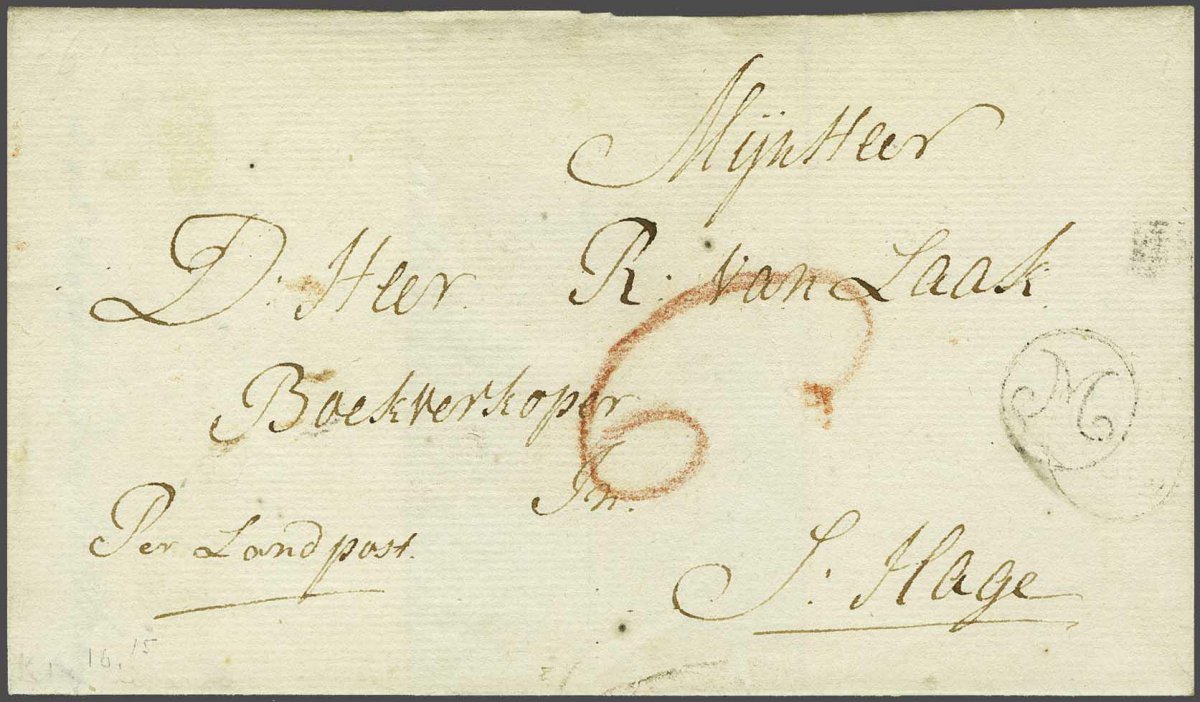 MijnHeer
D: Heer R: van Laak
Boekverkoper
In.
Per Landpost.
S: Hage
6
M
16. 15